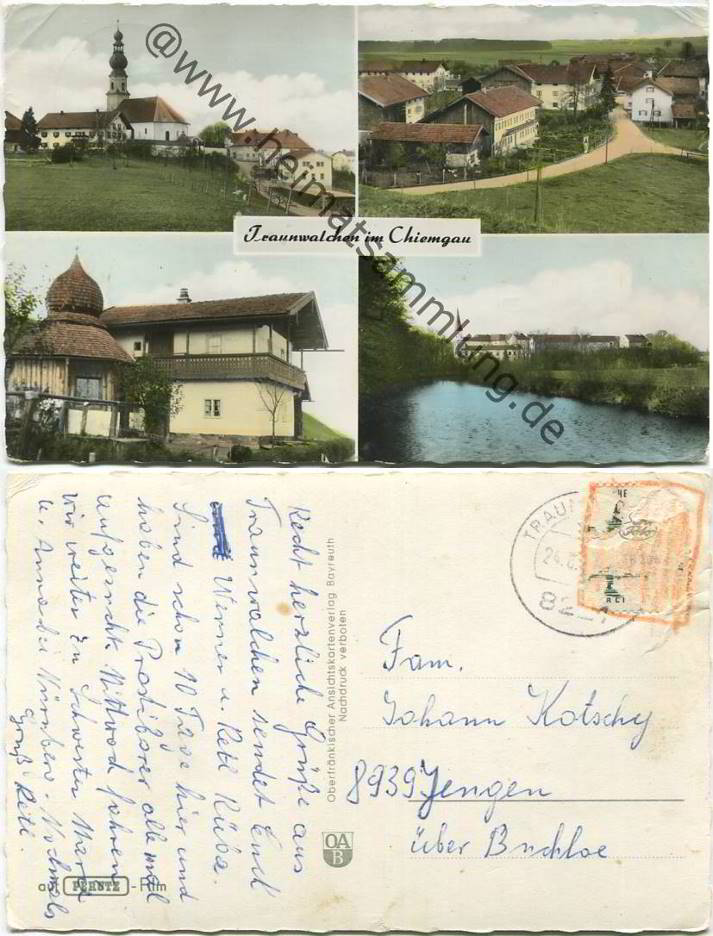 @www.heimatsammlung.de
Traunwalchen im Chiemgau
Recht herzliche Grüße aus
Traunwalchen sendet Euch
Werner u. Retl Rüba.
Sind schon 10 Tage hier und
haben die Prastiborer alle mal
aufgesucht. Mittwoch fahren
wir weiter zu Schwester Marie
u. Anna bei Nürnberg. Nochmals
Gruß Retl.
Oberfränkischer Ansichtskartenverlag Bayreuth
Nachdruck verboten
OA
B
auf PERUTZ - Film
TRAUN
24.
822
Fam.
Johann Kotschy
8939 Jengen
über Buchloe